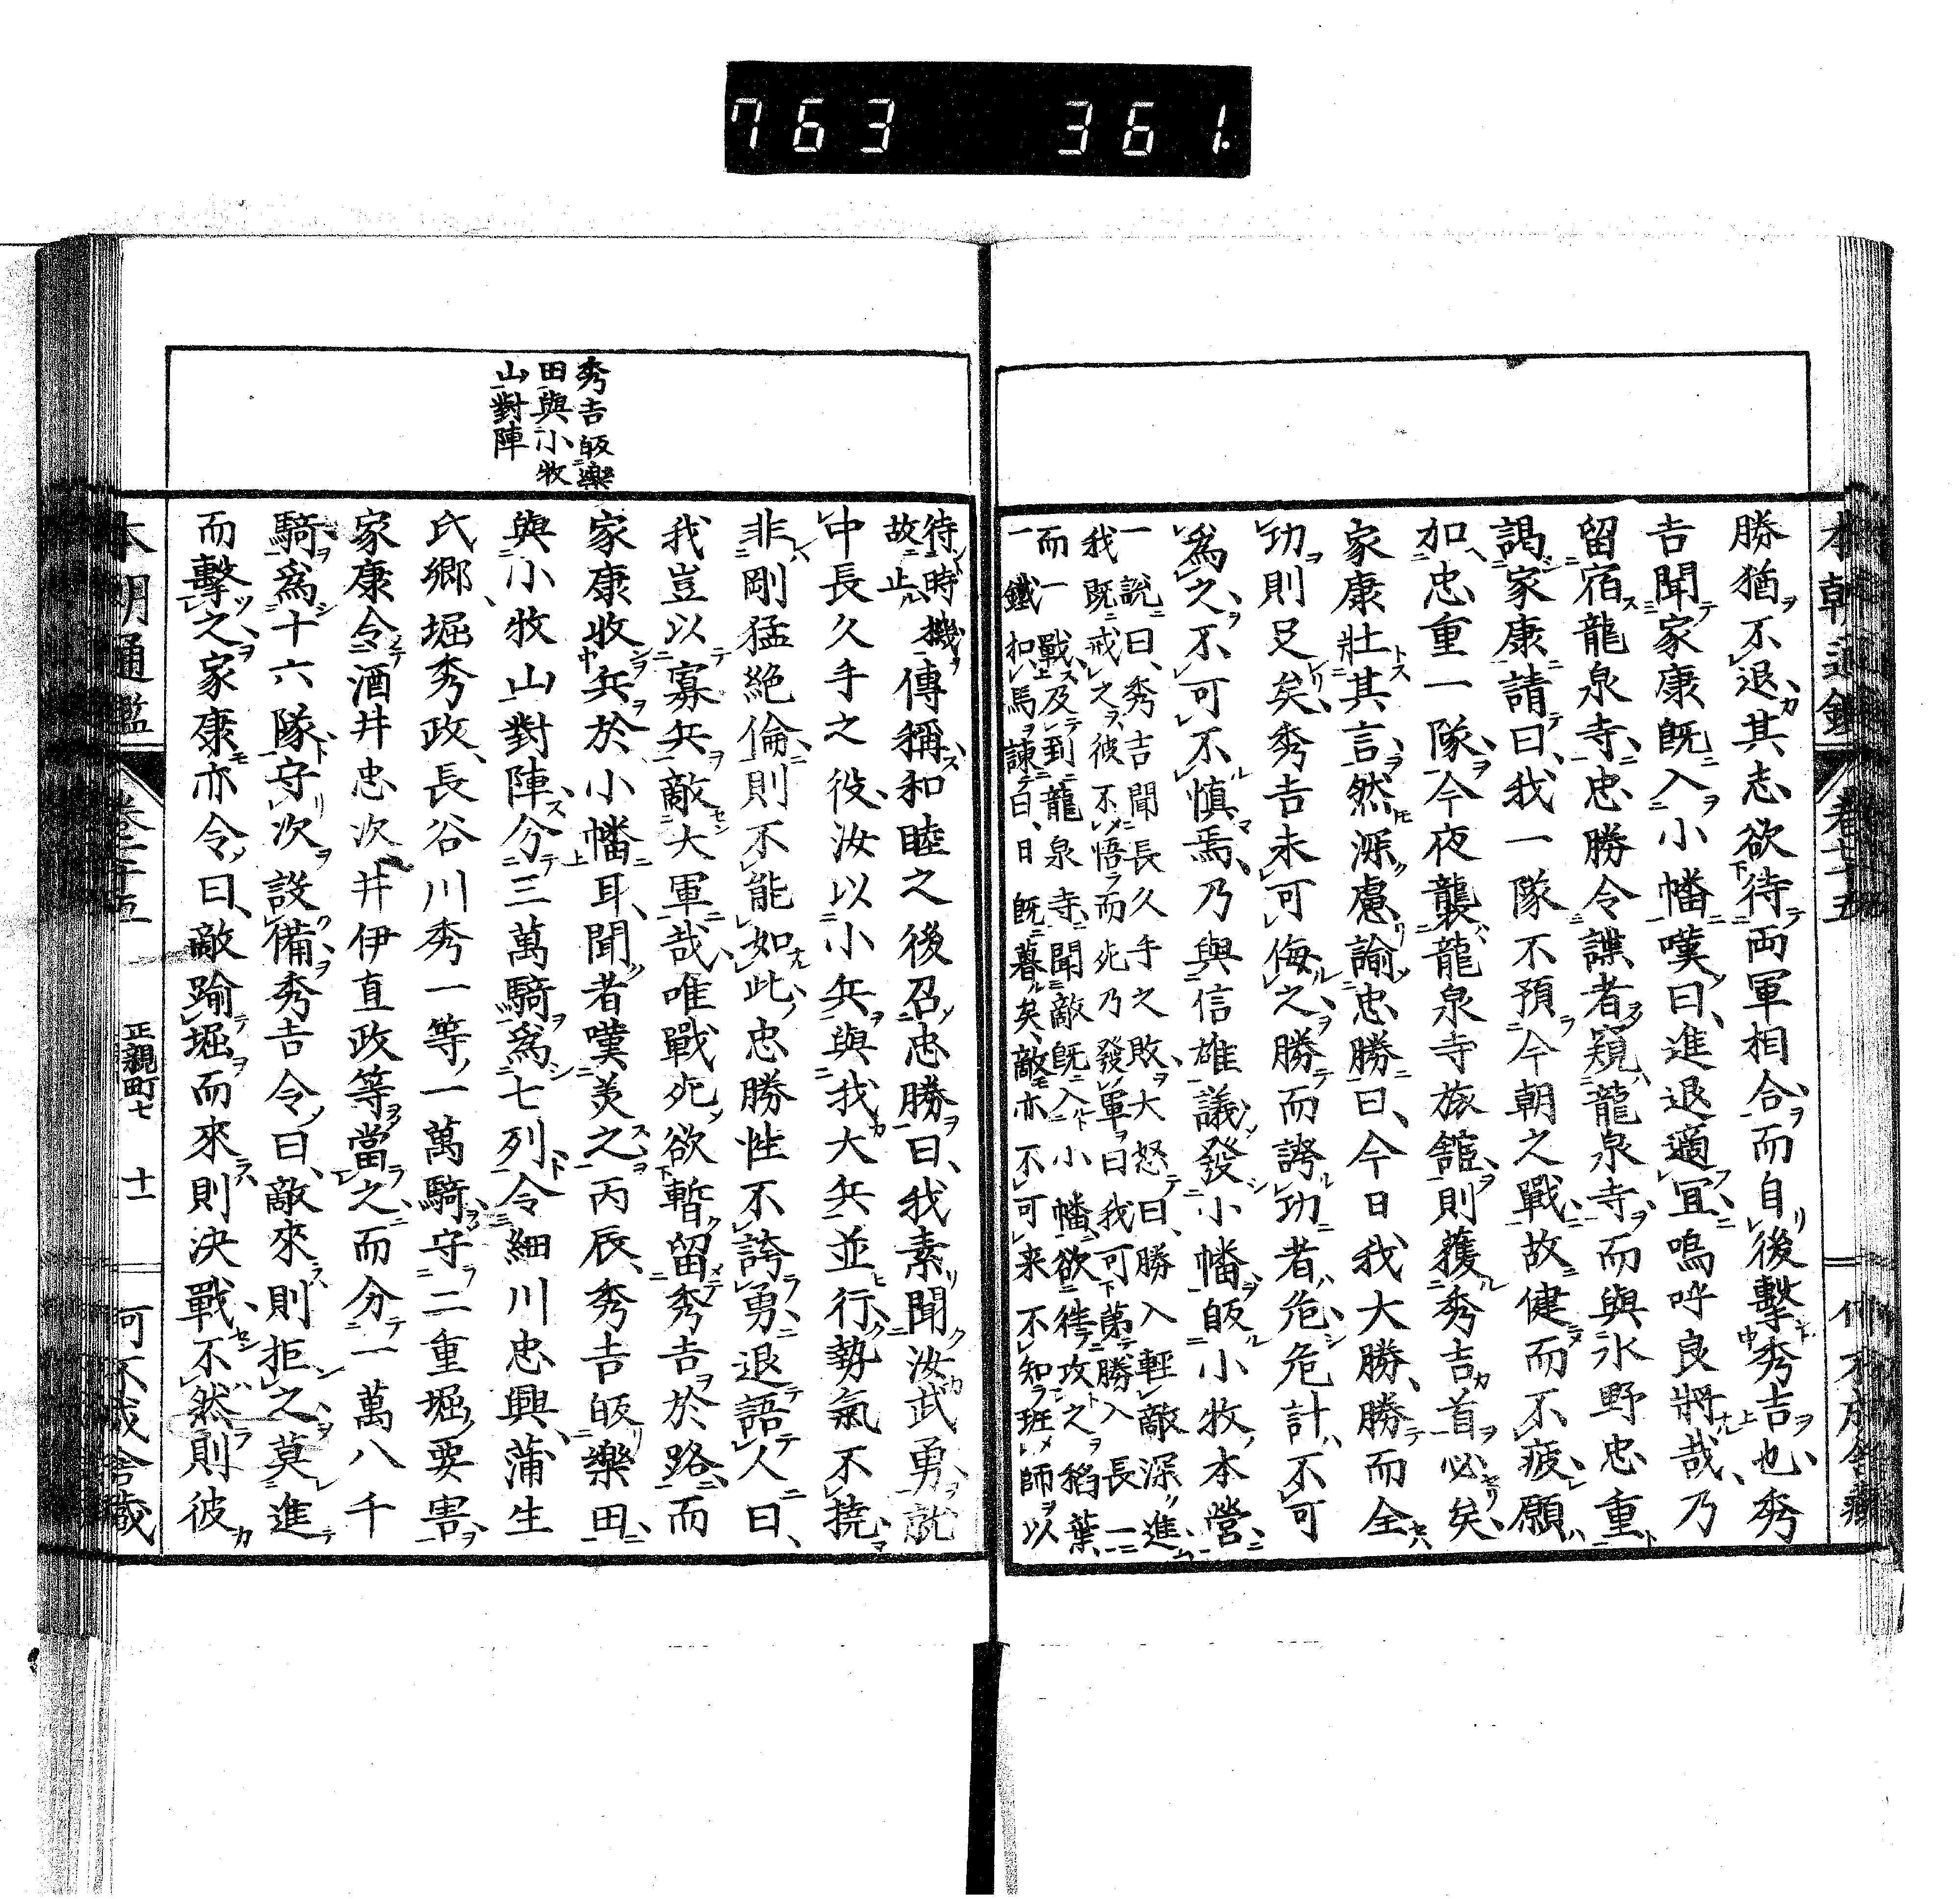 763 361.
本朝通鑑 卷七十五
勝猶不退其志欲待両軍相合而自後擊秀吉也秀
吉聞家康既入小幡嘆曰進退適宜嗚呼良將哉乃
留宿龍泉寺忠勝令諜者窺龍泉寺而與水野忠重
謁家康請曰我一隊不預今朝之戰故健而不疲願
加忠重一隊今夜襲龍泉寺旅舘則獲秀吉首必矣
家康壯其言然深慮諭忠勝曰今日我大勝勝而全
功則足矣秀吉未可侮之勝而誇功者危危計不可
爲之不可不慎焉乃與信雄議發小幡皈小牧本營
一說曰秀吉聞長久手之敗大怒曰勝入輕敵深進
我既戒之彼不悟而死乃發軍曰我可弔勝入長一
而一戰及到龍泉寺聞敵既入小幡欲徃攻之稻葉
一鐵扣馬諫曰日既暮矣敵亦不可来不知班師以
待時機
故止 傳稱和睦之後召忠勝曰我素聞汝武勇就
中長久手之役汝以小兵與我大兵並行勢氣不撓
非剛猛絶倫則不能如此忠勝性不誇勇退語人曰
我豈以寡兵敵大軍哉唯戰死欲暫留秀吉於路而
家康收兵於小幡耳聞者嘆美之丙辰秀吉皈樂田
與小牧山對陣分三萬騎爲七列令細川忠興蒲生
氏郷堀秀政長谷川秀一等一萬騎守二重堀要害
家康令酒井忠次井伊直政等當之而分一萬八千
騎爲十六隊守次設備秀吉令曰敵來則拒之莫進
而擊之家康亦令曰敵踰堀而來則決戰不然則彼
秀吉皈樂
田與小牧
山對陣
正親町七 十一